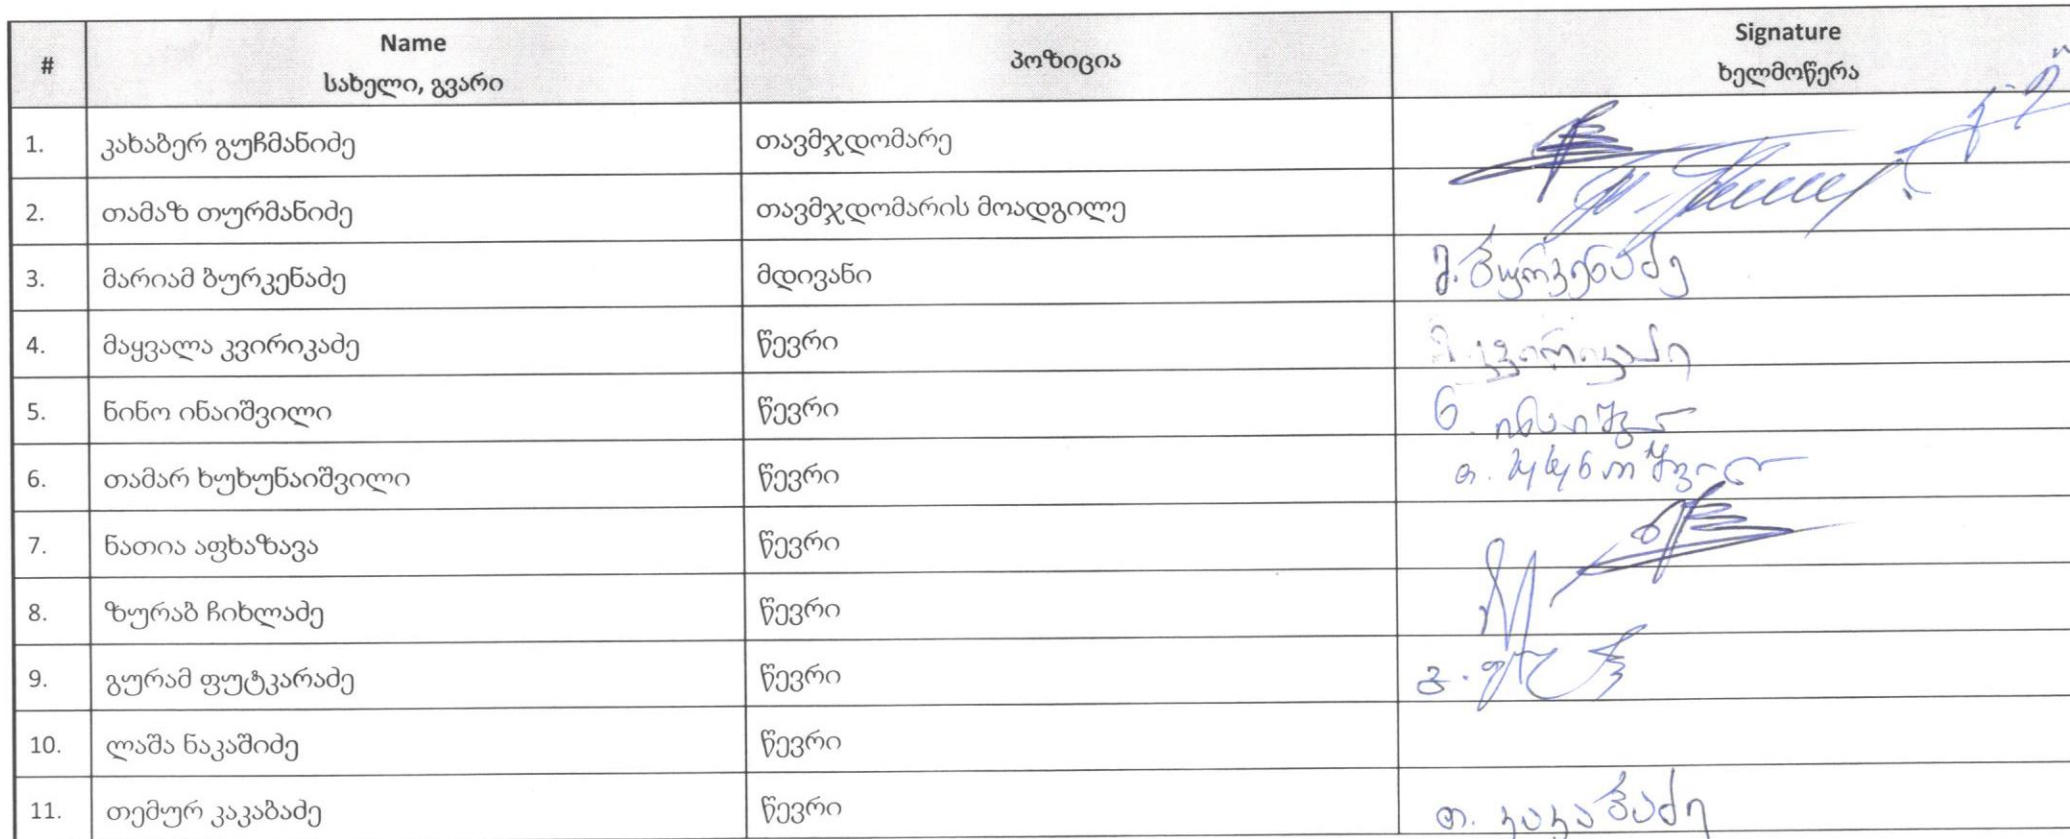 # Name სახელი, გვარი პოზიცია Signature ხელმოწერა
1. კახაბერ გუჩმანიძე თავმჯდომარე
2. თამაზ თურმანიძე თავმჯდომარის მოადგილე
3. მარიამ ბურკენაძე მდივანი მ. ბურკენაძე
4. მაყვალა კვირიკაძე წევრი მ. კვირიკაძე
5. ნინო ინაიშვილი წევრი ნ.
6. თამარ ხუხუნაიშვილი წევრი თ.
7. ნათია აფხაზავა წევრი
8. ზურაბ ჩიხლაძე წევრი
9. გურამ ფუტკარაძე წევრი გ.
10. ლაშა ნაკაშიძე წევრი
11. თემურ კაკაბაძე წევრი თ. კაკაბაძე